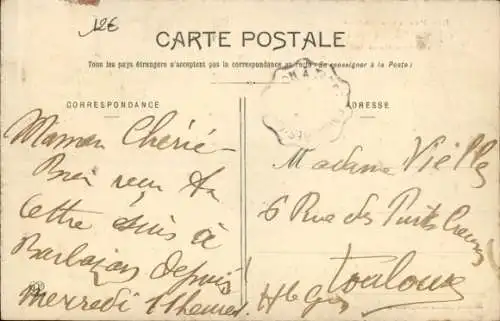 12€
CARTE POSTALE
Tous les pays étrangers n'acceptent pas la correspondance au recto (Se renseigner à la Poste)
CORRESPONDANCE
ADRESSE
Maman Chérie
Bien reçu ta
lettre suis à
Barbazan depuis
mercredi 11 heures.
Madame Vielle
6 Rue des Puits Creusés
Toulouse
Hte Gne